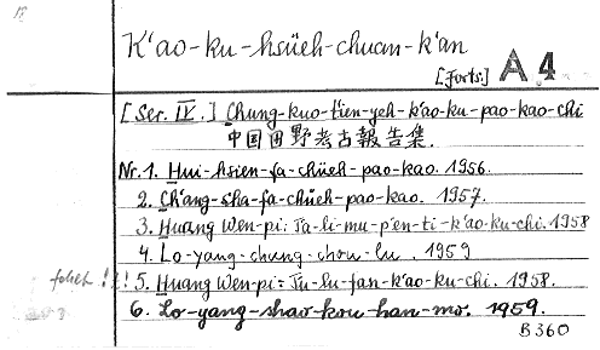 K'ao-ku-hsüeh-chuan-k'an
[Forts.] A 4
[Ser. IV.] Chung-kuo-t'ien-yeh-k'ao-ku-pao-kao-chi
中国田野考古報告集.
Nr. 1. Hui-hsien-fa-chüeh-pao-kao. 1956.
2. Ch'ang-sha-fa-chüeh-pao-kao. 1957.
3. Huang Wen-pi: Ta-li-mu-p'en-ti-k'ao-ku-chi. 1958
4. Lo-yang-chung-chou-lu. 1959
!! 5. Huang Wen-pi: Tu-lu-fan-k'ao-ku-chi. 1958.
6. Lo-yang-shao-kou-han-mo. 1959.
B 360